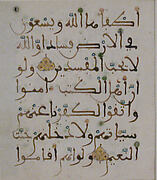 أطفأها الله ويسعون
في الأرض فسادا والله
لا يحب المفسدين ولو
أن أهل الكتب امنوا
واتقوا لكفرنا عنهم
سيئاتهم ولأدخلنهم جنت
النعيم ولو أنهم أقاموا